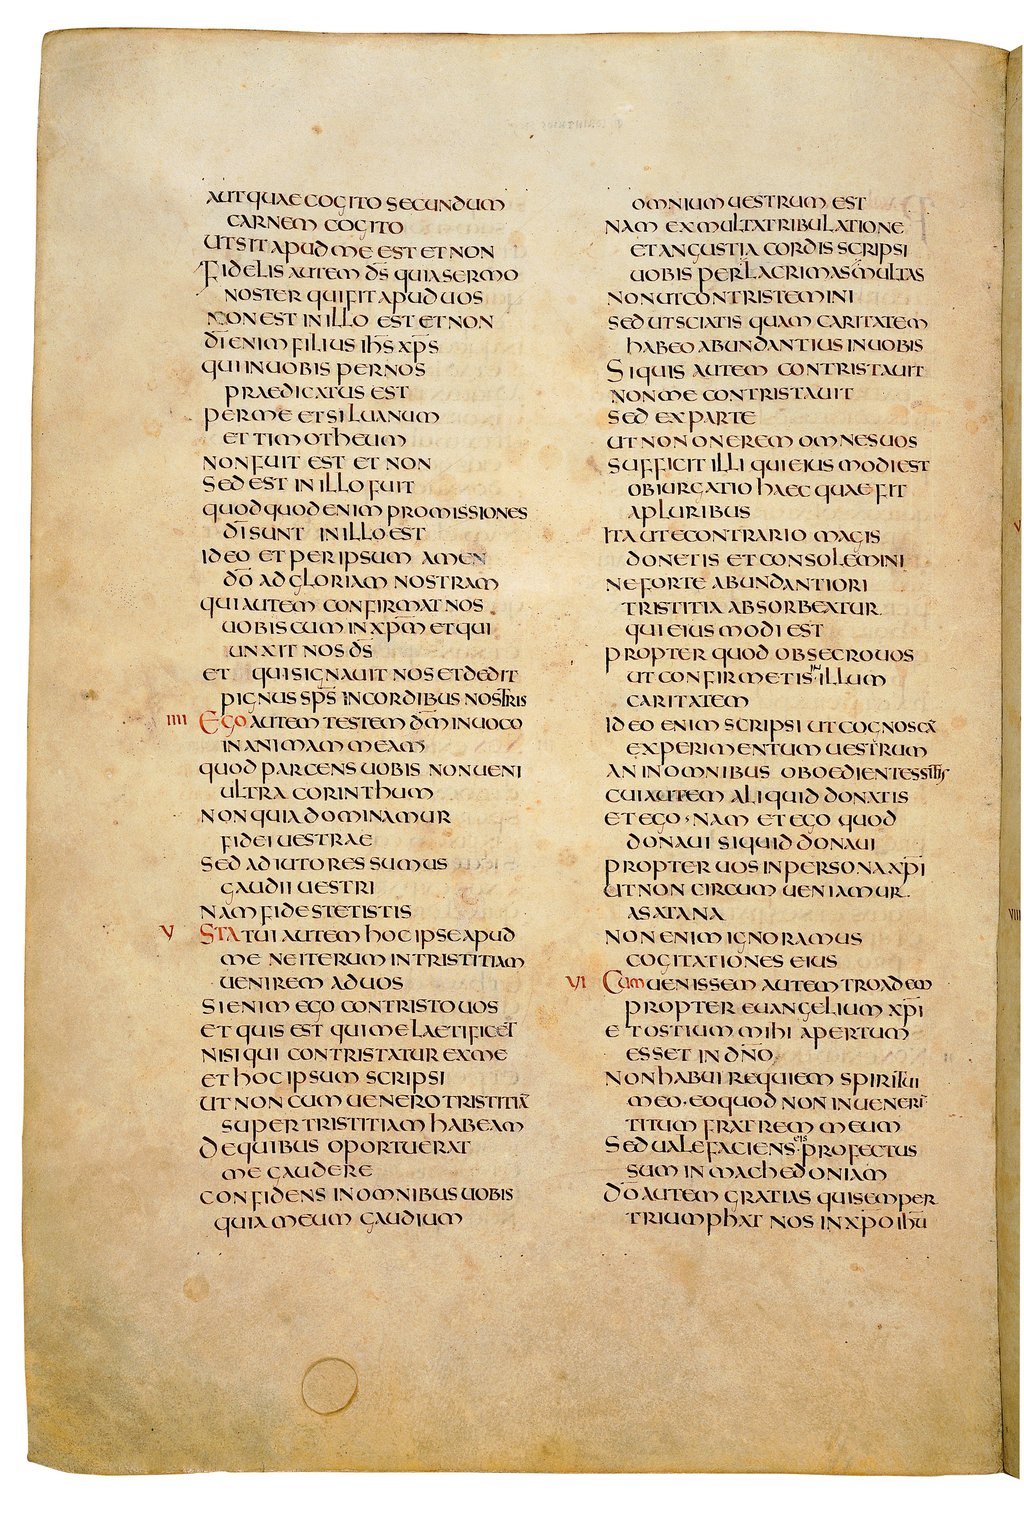 AUT QUAE COGITO SECUNDUM
CARNEM COGITO
UT SIT APUD ME EST ET NON
FIDELIS AUTEM D̅S̅ QUIA SERMO
NOSTER QUI FIT APUD UOS
NON EST IN ILLO EST ET NON
D̅I̅ ENIM FILIUS IH̅S̅ XP̅S̅
QUI IN UOBIS PER NOS
PRAEDICATUS EST
PER ME ET SILUANUM
ET TIMOTHEUM
NON FUIT EST ET NON
SED EST IN ILLO FUIT
QUODQUOD ENIM PROMISSIONES
D̅I̅ SUNT IN ILLO EST
IDEO ET PER IPSUM AMEN
D̅O̅ AD GLORIAM NOSTRAM
QUI AUTEM CONFIRMAT NOS
UOBISCUM IN XP̅M̅ ET QUI
UNXIT NOS D̅S̅
ET QUI SIGNAUIT NOS ET DEDIT
PIGNUS SP̅S̅ IN CORDIBUS NOSTRIS
IIII EGO AUTEM TESTEM D̅M̅ INUOCO
IN ANIMAM MEAM
QUOD PARCENS UOBIS NON UENI
ULTRA CORINTHUM
NON QUIA DOMINAMUR
FIDEI UESTRAE
SED ADIUTORES SUMUS
GAUDII UESTRI
NAM FIDE STETISTIS
V STATUI AUTEM HOC IPSE APUD
ME NE ITERUM IN TRISTITIAM
UENIREM AD UOS
SI ENIM EGO CONTRISTO UOS
ET QUIS EST QUI ME LAETIFICET
NISI QUI CONTRISTATUR EX ME
ET HOC IPSUM SCRIPSI
UT NON CUM UENERO TRISTITIĀ
SUPER TRISTITIAM HABEAM
DE QUIBUS OPORTUERAT
ME GAUDERE
CONFIDENS IN OMNIBUS UOBIS
QUIA MEUM GAUDIUM
OMNIUM UESTRUM EST
NAM EX MULTA TRIBULATIONE
ET ANGUSTIA CORDIS SCRIPSI
UOBIS PER LACRIMAS MULTAS
NON UT CONTRISTEMINI
SED UT SCIATIS QUAM CARITATEM
HABEO ABUNDANTIUS IN UOBIS
SI QUIS AUTEM CONTRISTAUIT
NON ME CONTRISTAUIT
SED EX PARTE
UT NON ONEREM OMNES UOS
SUFFICIT ILLI QUI EIUSMODI EST
OBIURGATIO HAEC QUAE FIT
A PLURIBUS
ITA UT E CONTRARIO MAGIS
DONETIS ET CONSOLEMINI
NE FORTE ABUNDANTIORI
TRISTITIA ABSORBEATUR
QUI EIUSMODI EST
PROPTER QUOD OBSECRO UOS
UT CONFIRMETIS IN ILLUM
CARITATEM
IDEO ENIM SCRIPSI UT COGNOSCĀ
EXPERIMENTUM UESTRUM
AN IN OMNIBUS OBOEDIENTES SITIS
CUI AUTEM ALIQUID DONATIS
ET EGO · NAM ET EGO QUOD
DONAUI SI QUID DONAUI
PROPTER UOS IN PERSONA XP̅I̅
UT NON CIRCUMUENIAMUR
A SATANA
NON ENIM IGNORAMUS
COGITATIONES EIUS
VI CUM UENISSEM AUTEM TROADEM
PROPTER EUANGELIUM XP̅I̅
ET OSTIUM MIHI APERTUM
ESSET IN D̅N̅O̅
NON HABUI REQUIEM SPIRITUI
MEO · EO QUOD NON INUENERI
TITUM FRATREM MEUM
SED UALEFACIENS EIS PROFECTUS
SUM IN MACHEDONIAM
D̅O̅ AUTEM GRATIAS QUI SEMPER
TRIUMPHAT NOS IN XP̅O̅ IH̅U̅